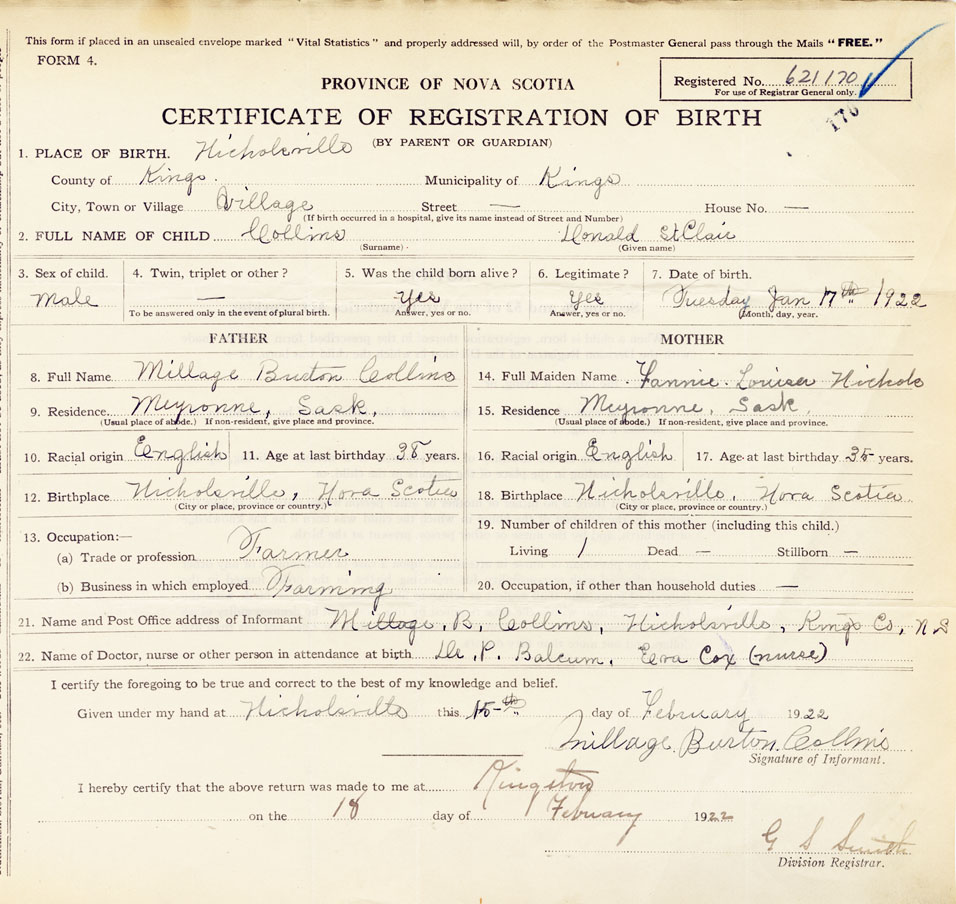 This form if placed in an unsealed envelope marked "Vital Statistics" and properly addressed will, by order of the Postmaster General pass through the Mails "FREE."
FORM 4.
Registered No. 621170
For use of Registrar General only.
170
PROVINCE OF NOVA SCOTIA
CERTIFICATE OF REGISTRATION OF BIRTH
(BY PARENT OR GUARDIAN)
1. PLACE OF BIRTH. Nicholsville
County of Kings. Municipality of Kings
City, Town or Village Village Street — House No. —
(If birth occurred in a hospital, give its name instead of Street and Number)
2. FULL NAME OF CHILD Collins Donald StClair
(Surname) (Given name)
3. Sex of child. 4. Twin, triplet or other? 5. Was the child born alive? 6. Legitimate? 7. Date of birth.
Male — Yes Yes Tuesday Jan 17th 1922
To be answered only in the event of plural birth. Answer, yes or no. Answer, yes or no. (Month, day, year.
FATHER MOTHER
8. Full Name Millage Burton Collins 14. Full Maiden Name Fannie Louisa Nichols
9. Residence. Meyronne, Sask, 15. Residence Meyronne, Sask,
(Usual place of abode.) If non-resident, give place and province. (Usual place of abode.) If non-resident, give place and province.
10. Racial origin English 11. Age at last birthday 38 years. 16. Racial origin English 17. Age at last birthday 35 years.
12. Birthplace Nicholsville, Nova Scotia 18. Birthplace Nicholsville, Nova Scotia
(City or place, province or country.) (City or place, province or country.)
13. Occupation:— 19. Number of children of this mother (including this child.)
(a) Trade or profession Farmer Living 1 Dead — Stillborn —
(b) Business in which employed Farming 20. Occupation, if other than household duties —
21. Name and Post Office address of Informant Millage, B, Collins, Nicholsville, Kings Co, N S
22. Name of Doctor, nurse or other person in attendance at birth Dr, P. Balcum, Eva Cox (nurse)
I certify the foregoing to be true and correct to the best of my knowledge and belief.
Given under my hand at Nicholsville this 15th day of February 1922
Millage Burton Collins
Signature of Informant.
I hereby certify that the above return was made to me at Kingston
on the 18 day of February 1922
G S Smith
Division Registrar.